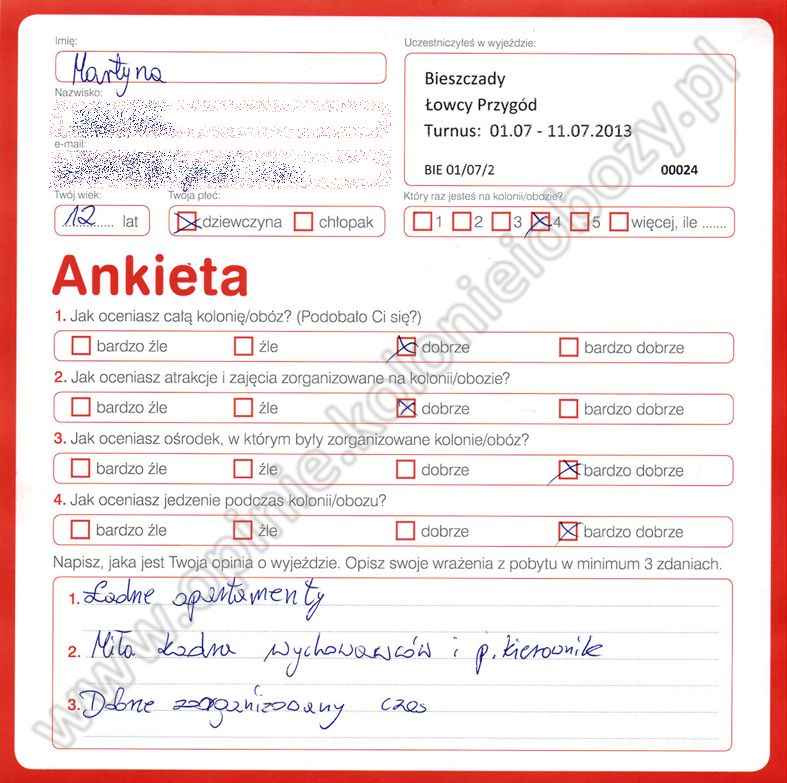 Imię:
Martyna
Uczestniczyłeś w wyjeździe:
Bieszczady
Łowcy Przygód
Turnus: 01.07 - 11.07.2013
BIE 01/07/2 00024
Nazwisko:
e-mail:
Twój wiek: Twoja płeć: Który raz jesteś na kolonii/obozie?
12 lat dziewczyna chłopak 1 2 3 4 5 więcej, ile .......
Ankieta
1. Jak oceniasz całą kolonię/obóz? (Podobało Ci się?)
bardzo źle źle dobrze bardzo dobrze
2. Jak oceniasz atrakcje i zajęcia zorganizowane na kolonii/obozie?
bardzo źle źle dobrze bardzo dobrze
3. Jak oceniasz ośrodek, w którym były zorganizowane kolonie/obóz?
bardzo źle źle dobrze bardzo dobrze
4. Jak oceniasz jedzenie podczas kolonii/obozu?
bardzo źle źle dobrze bardzo dobrze
Napisz, jaka jest Twoja opinia o wyjeździe. Opisz swoje wrażenia z pobytu w minimum 3 zdaniach.
1. Ładne apartamenty
2. Miła kadra wychowawców i p. kierownik
3. Dobrze zorganizowany czas
www.opinie.kolonieiobozy.pl